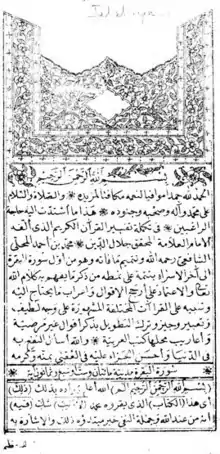 بسم الله الرحمن الرحيم
الحمد لله حمدا موافيا لنعمه مكافئا لمزيده والصلاة والسلام
على محمد وآله وصحبه وجنوده هذا ما اشتدت اليه حاجة
الراغبين في تكملة تفسير القرآن الكريم الذى الفه
الامام العلامة المحقق جلال الدين محمد بن احمد المحلى
الشافعى رحمه الله وتتميم ما فاته وهو من اول سورة البقرة
الى آخر الاسراء بتتمة على نمطه من ذكر ما يفهم به كلام الله
تعالى والاعتماد على ارجح الاقوال واعراب ما يحتاج اليه
وتنبيه على القراآت المختلفة المشهورة على وجه لطيف
وتعبير وجيز وترك التطويل بذكر اقوال غير مرضية
واعاريب محلها كتب العربية والله اسأل النفع به
فى الدنيا واحسن الجزاء عليه فى العقبى بمنه وكرمه
سورة البقرة مدنية مائتان وست او سبع وثمانون آية
بسم الله الرحمن الرحيم (الم) الله اعلم بمراده بذلك (ذلك)
اى هذا (الكتاب) الذى يقرؤه محمد (لا ريب) شك (فيه)
انه من عند الله وجملة النفى خبر مبتدؤه ذلك والاشارة به